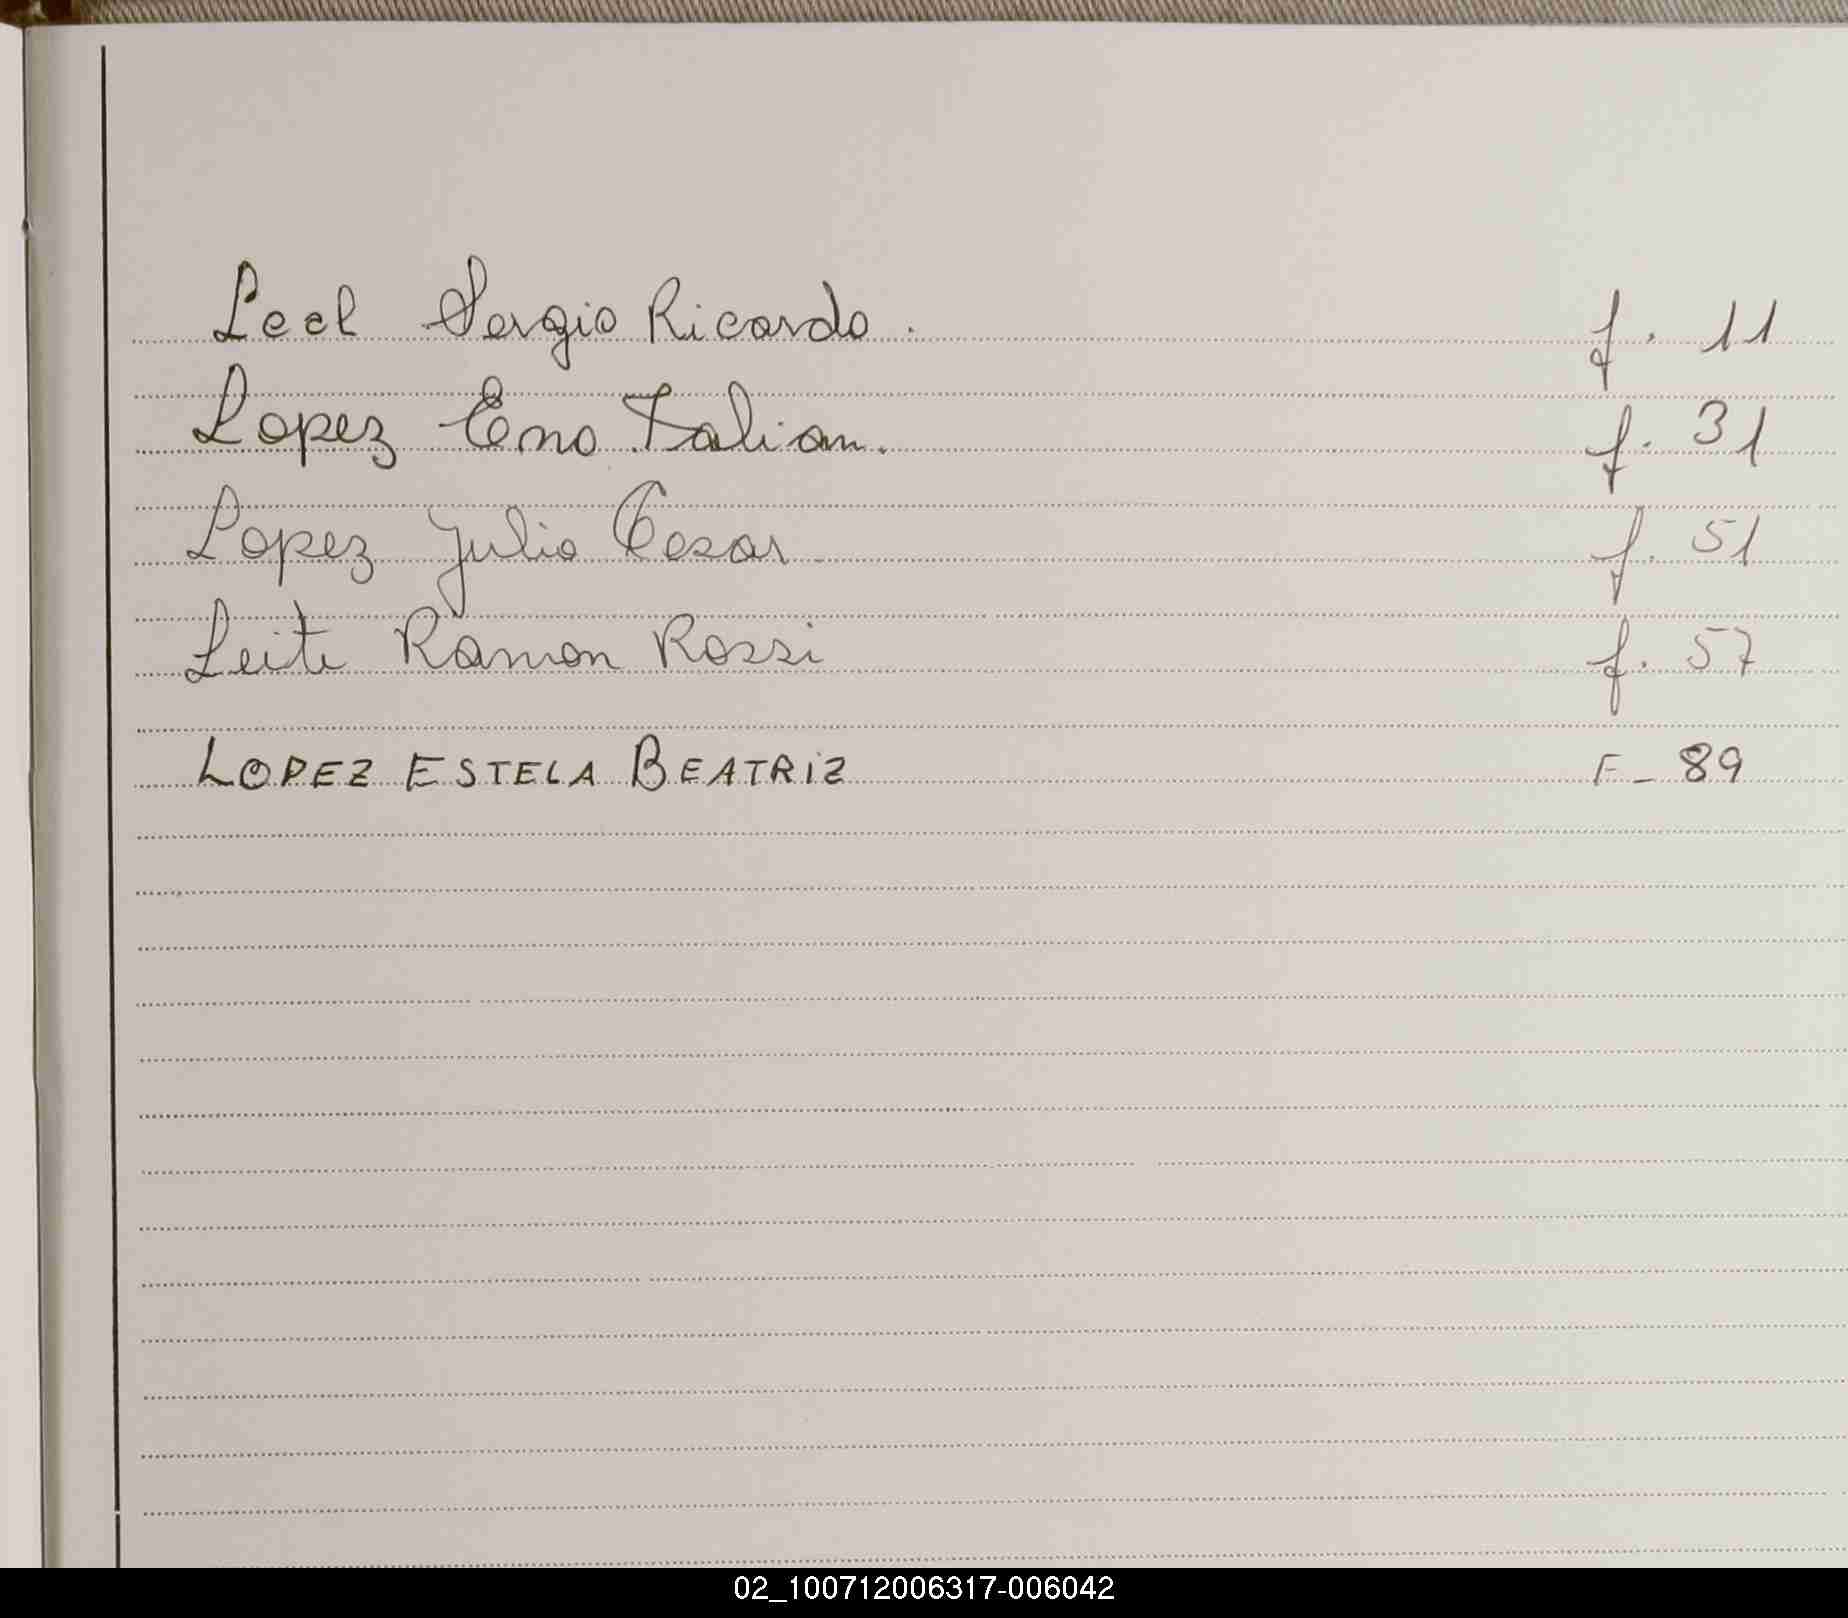 Leel Sergio Ricardo. f. 11
Lopez Eno Italian. f. 31
Lopez Julio Cesar f. 51
Leite Ramon Rossi f. 57
LOPEZ ESTELA BEATRIZ F_ 89
02_100712006317-006042